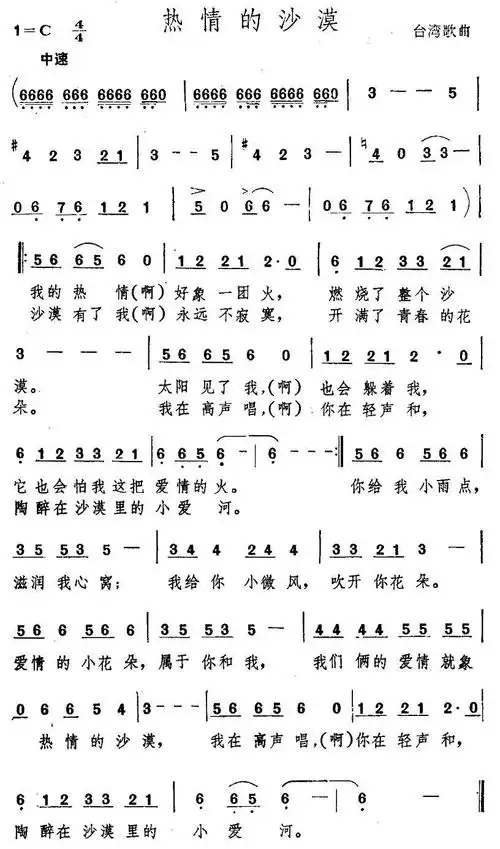 热情的沙漠
1=C 4/4 台湾歌曲
中速
(6666 6666 6666 660 | 6666 6666 6666 660 | 3 - - 5 |
#4 2 3 21 | 3 - - 5 | #4 2 3 21 | ♮4 0 33 -
06 76 12 1 | 5 0 66 - | 06 76 12 1) |
|: 56 65 6 0 | 12 21 2·0 | 6 12 33 21 |
我的 热 情(啊)好象 一团 火, 燃 烧了 整个 沙
沙漠 有了 我(啊)永远 不寂 寞, 开 满了 青春 的花
3 - - - | 56 65 6 0 | 12 21 2·0 |
漠。 太阳 见了 我,(啊) 也会 躲着 我,
朵。 我在 高声 唱,(啊) 你在 轻声 和,
6 12 33 21 | 6 65 6 - | 6 - - - :| 56 6 56 6
它 也会 怕我 这把 爱 情的 火。 你给 我 小雨 点,
陶 醉在 沙漠 里的 小 爱 河。
35 53 5 - | 34 4 24 4 | 33 21 3 - |
滋润 我心 窝; 我给 你 小微 风, 吹开 你花 朵。
56 6 56 6 | 35 53 5 - | 44 44 55 55 |
爱情 的 小花 朵, 属于 你和 我, 我们 俩的 爱情 就象
06 66 5 4 | 3 - - - | 56 65 6 0 | 12 21 2·0 |
热情 的 沙漠, 我在 高声 唱,(啊)你在 轻声 和,
6 12 33 21 | 6 65 6 - | 6 - - 0 ‖
陶 醉在 沙漠 里的 小 爱 河。